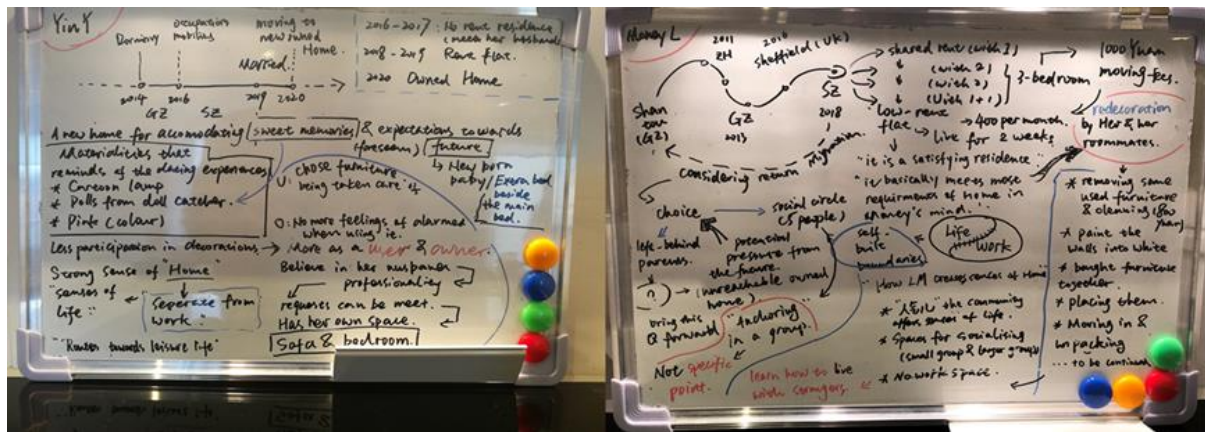 Yin Y
Dormitory
occupation
mobilities
moving to
new owned
Home.
Married.
2014 2016 2019 2020
GZ SZ
2016-2017: No rent residence
2018-2019 Rent flat.
2020 Owned Home
A new home for accomodating sweet memories & expectations towards
(foreseen) future
Materialities that
reminds of the dating experiences
* Cartoon lamp
* Dolls from doll catcher.
* Pink (colour)
U: chose furniture
being taken care of
O: No more feelings of alarmed
when using it.
New born
baby / Extra bed
beside
the main
bed.
Less participation in decorations → More as a user & owner.
Strong sense of "Home"
"senses of
life"
"seperate from
work."
"Routes towards leisure life"
Believe in her husband
professionality
requests can be meet.
Has her own space.
Sofa & bedroom.
Money L
2011
ZH
2016
Sheffield (UK)
GZ
2013
SZ
2018
Shan
tou
(GZ)
migration.
considering return
shared rent (with 3)
(with 2)
(with 2)
(with 1+1)
3-bedroom
1000 Yuan
moving-fees.
low-rent
flat → 400 per month.
Live for 2 weeks
redecoration
by Her & her
roommates.
"it is a satisfying residence"
"it basically meets most
requirments of Home in
money's mind."
choice
left-behind
parents.
social circle
(5 people)
potential
pressure from
the future.
(unreachable owned
home)
?
bring this
Q forward
"Anchoring"
in a group.
Not specific
point.
self-
built
boundaries
Life
Work
How LM creates senses of Home
* the community
offers senses of life.
* Spaces for socialising
(small group & larger group)
* No work space.
learn how to live
with strangers
* removing some
used furniture
& cleaning (800
yuan)
* paint the
walls into white
* bought furniture
together.
* placing them.
* Moving in &
unpacking
... to be continued